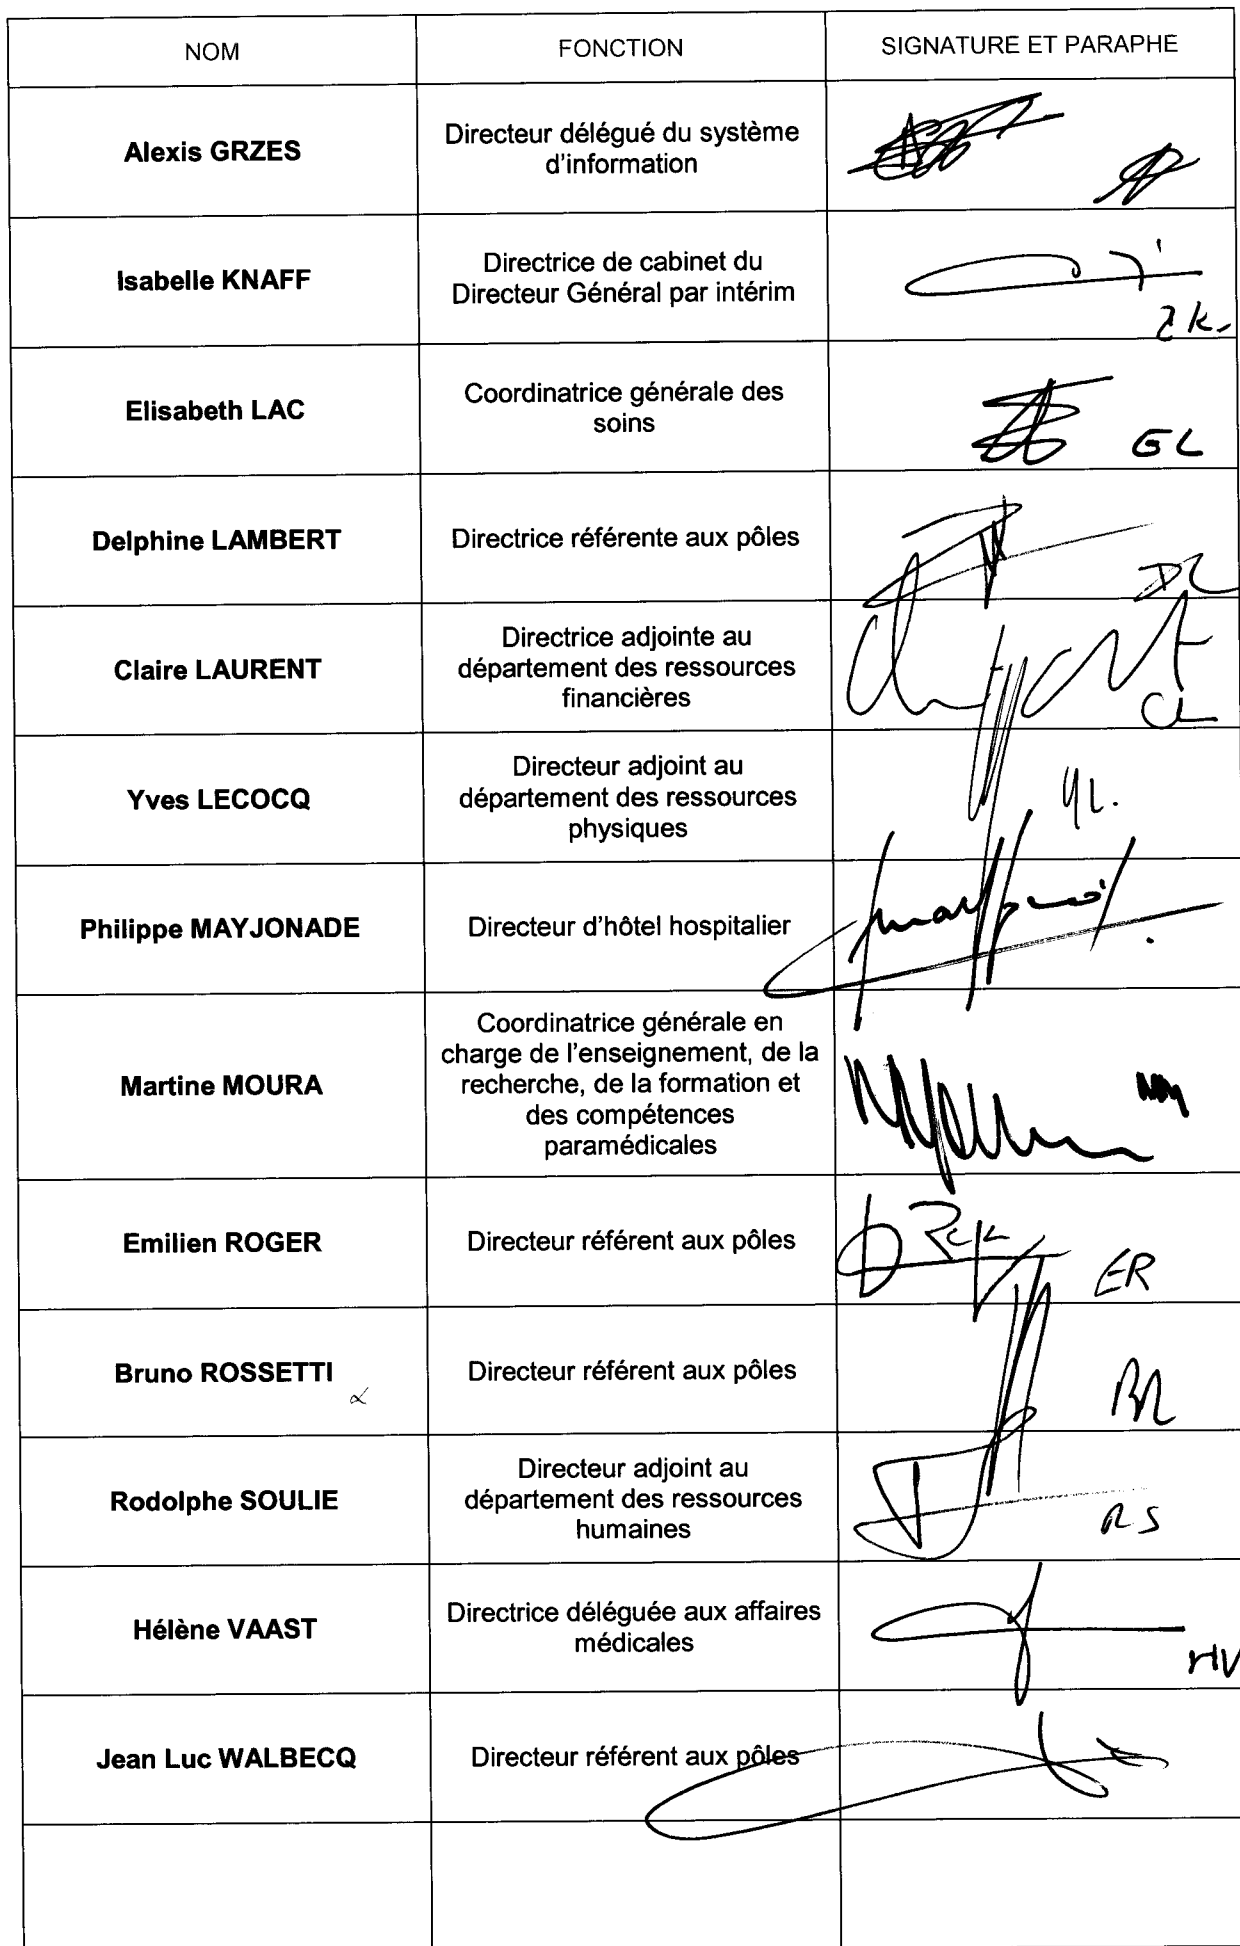 NOM FONCTION SIGNATURE ET PARAPHE
Alexis GRZES
Directeur délégué du système
d'information
Isabelle KNAFF
Directrice de cabinet du
Directeur Général par intérim
Elisabeth LAC
Coordinatrice générale des
soins
EL
Delphine LAMBERT
Directrice référente aux pôles
DL
Claire LAURENT
Directrice adjointe au
département des ressources
financières
CL
Yves LECOCQ
Directeur adjoint au
département des ressources
physiques
YL.
Philippe MAYJONADE
Directeur d'hôtel hospitalier
Martine MOURA
Coordinatrice générale en
charge de l'enseignement, de la
recherche, de la formation et
des compétences
paramédicales
MM
Emilien ROGER
Directeur référent aux pôles
ER
Bruno ROSSETTI
Directeur référent aux pôles
BR
Rodolphe SOULIE
Directeur adjoint au
département des ressources
humaines
RS
Hélène VAAST
Directrice déléguée aux affaires
médicales
HV
Jean Luc WALBECQ
Directeur référent aux pôles